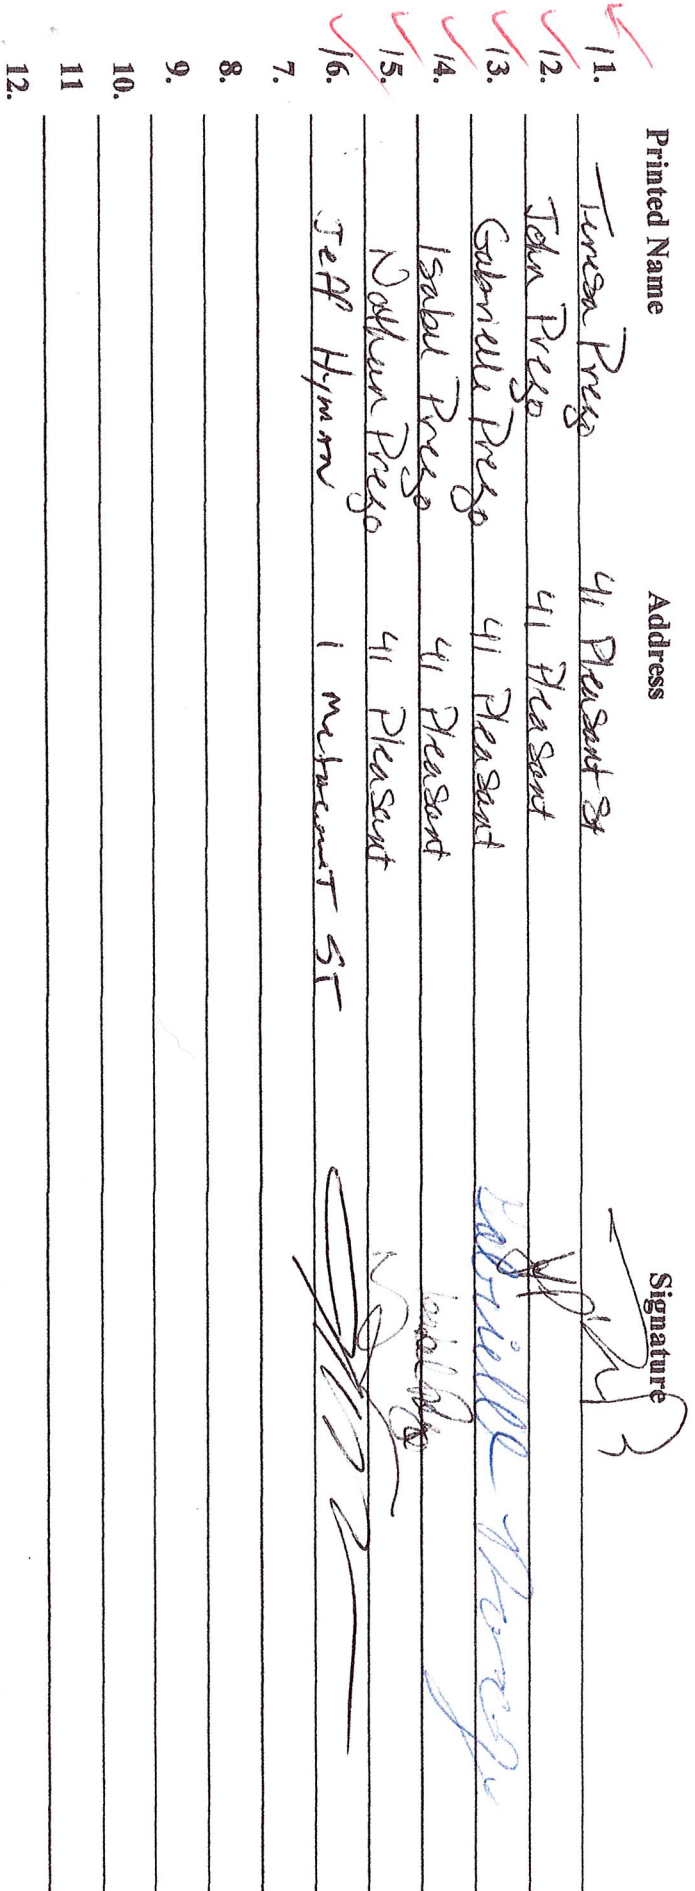 Printed Name Address Signature
11. Teresa Prezo 41 Pleasant St
12. John Prezo 41 Pleasant
13. Gabrielle Prezo 41 Pleasant Gabrielle Prezo
14. Isabel Prezo 41 Pleasant
15. Nathan Prezo 41 Pleasant
16. Jeff Hyman 1 ST
7.
8.
9.
10.
11
12.